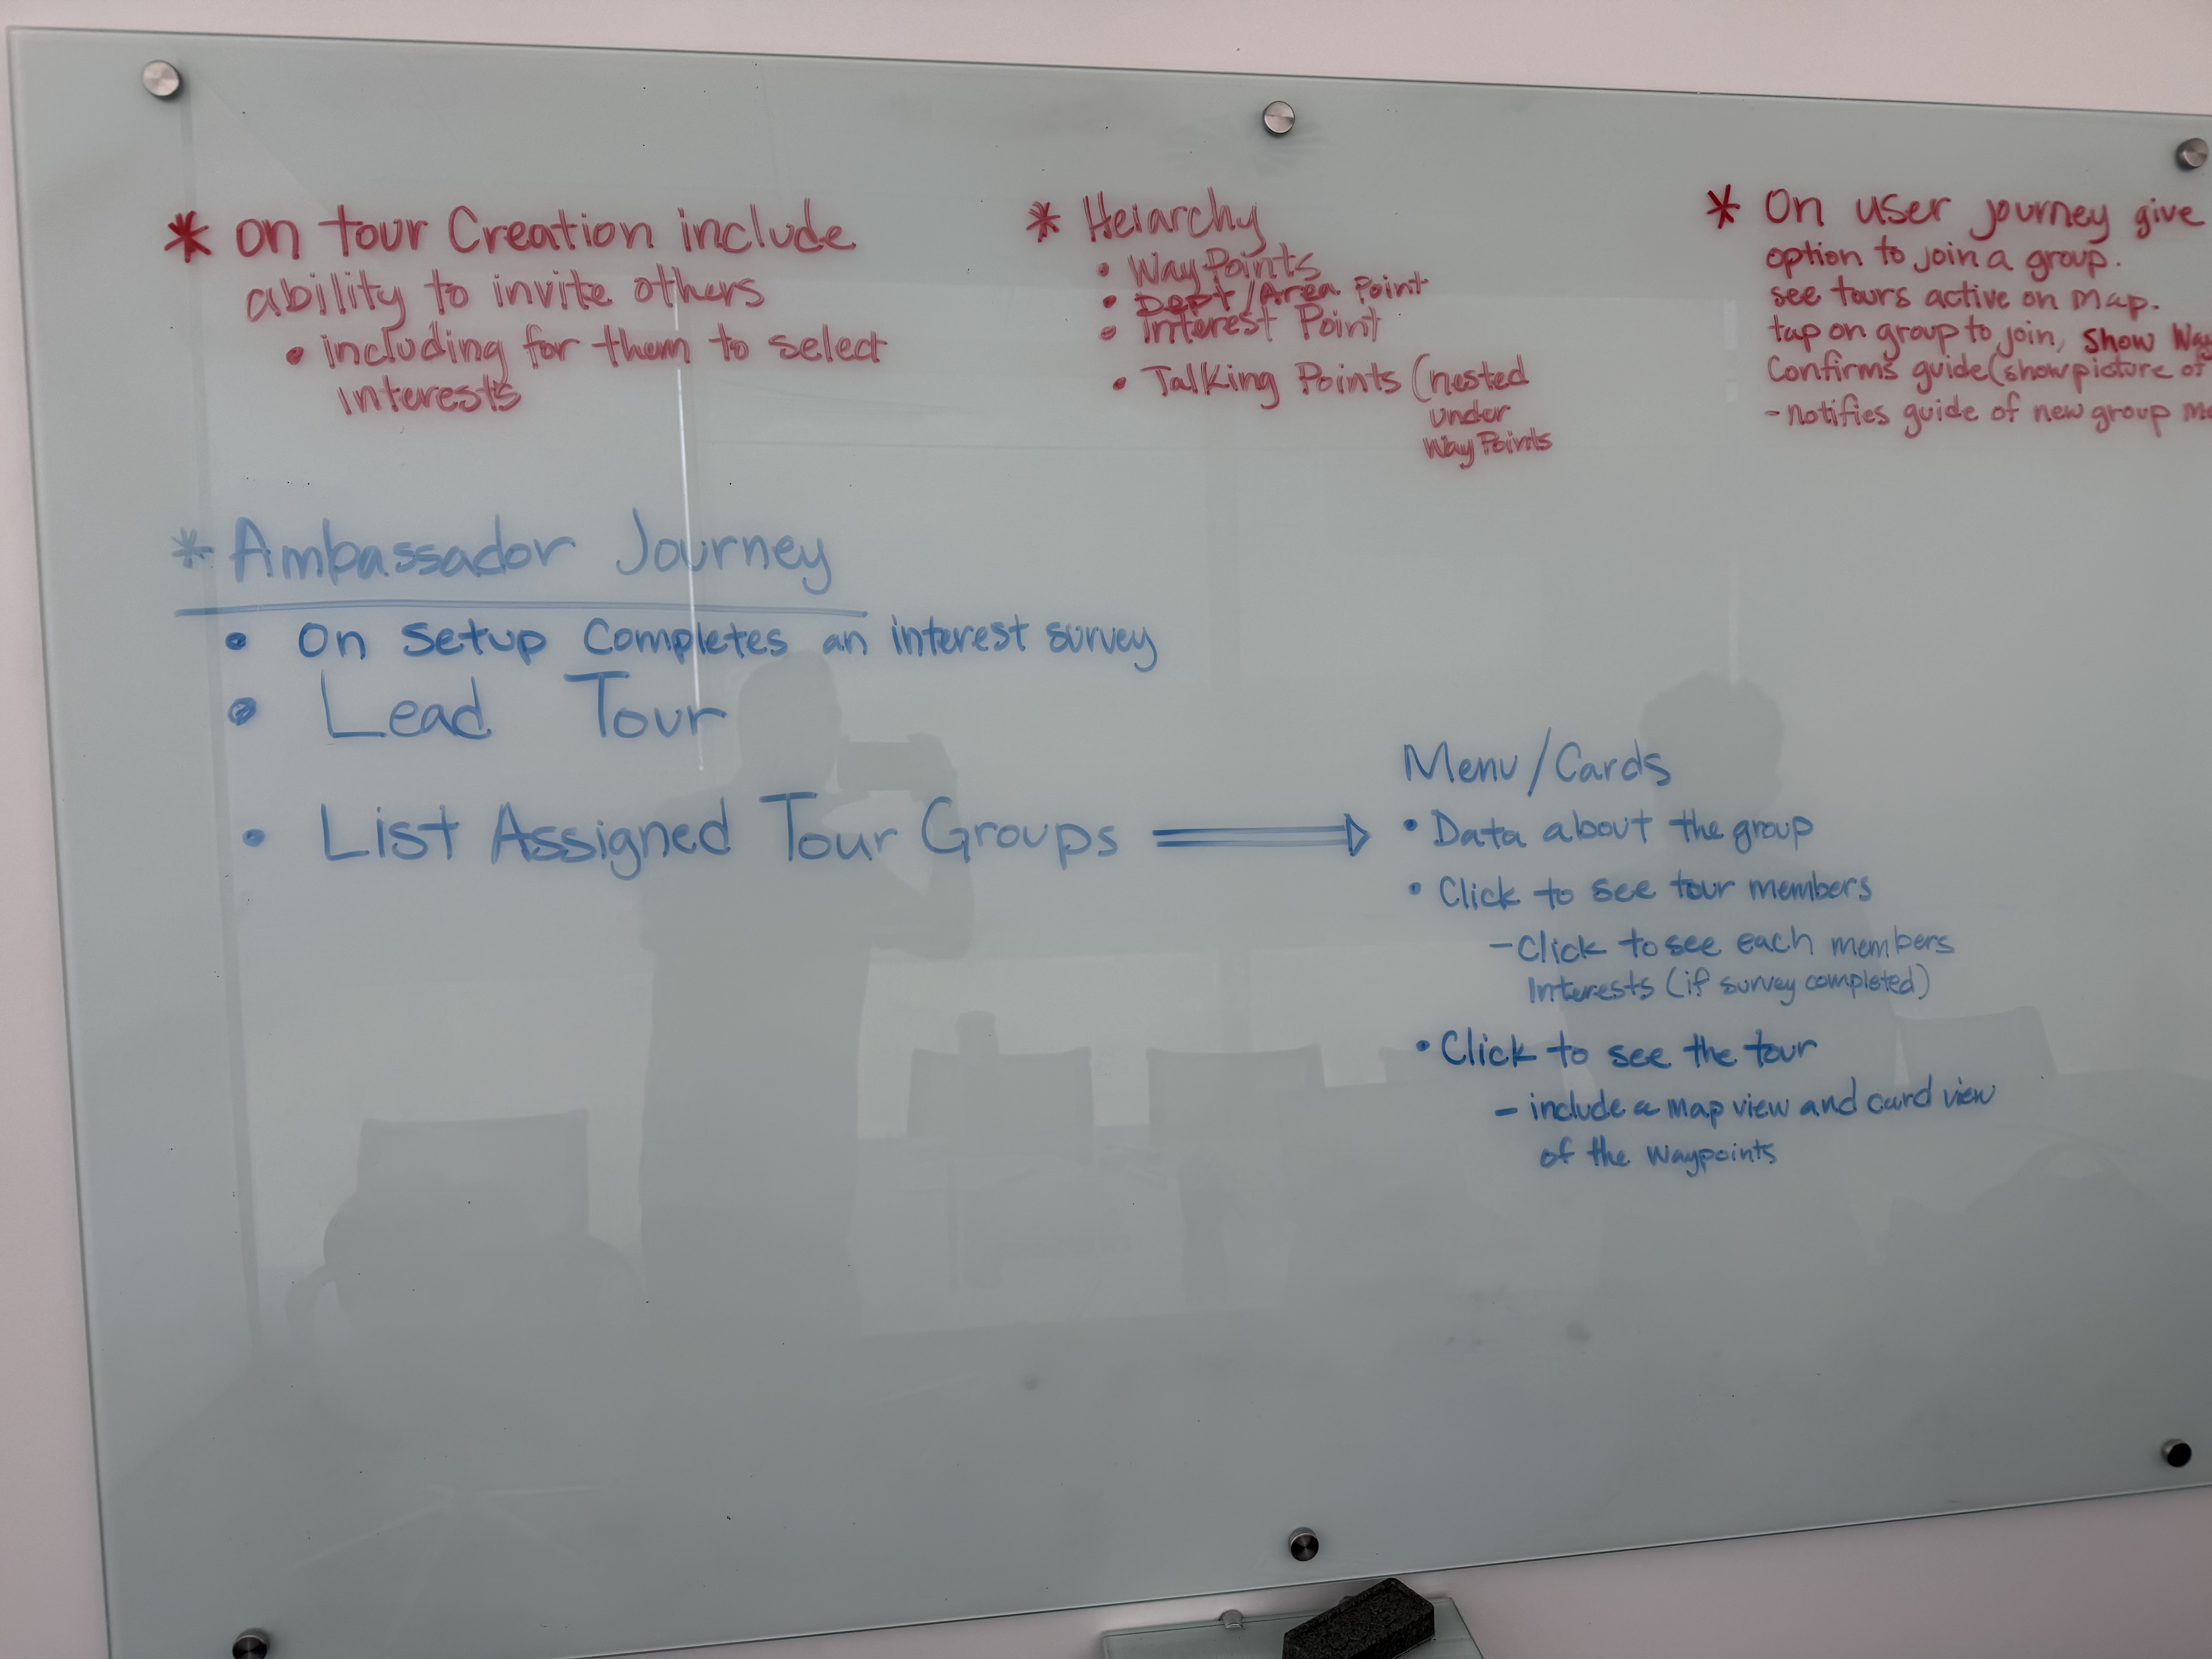 * On tour Creation include
ability to invite others
• including for them to select
interests
* Heiarchy
• Way Points
• Dept/Area Point
• Interest Point
• Talking Points (nested
under
Way Points
* On user journey give
option to join a group.
see tours active on map.
tap on group to join, show
Confirms guide (show picture of
- notifies guide of new group
* Ambassador Journey
• On Setup Completes an interest survey
• Lead Tour
• List Assigned Tour Groups ⇒
Menu/Cards
• Data about the group
• Click to see tour members
- Click to see each members
Interests (if survey completed)
• Click to see the tour
- include a map view and card view
of the waypoints